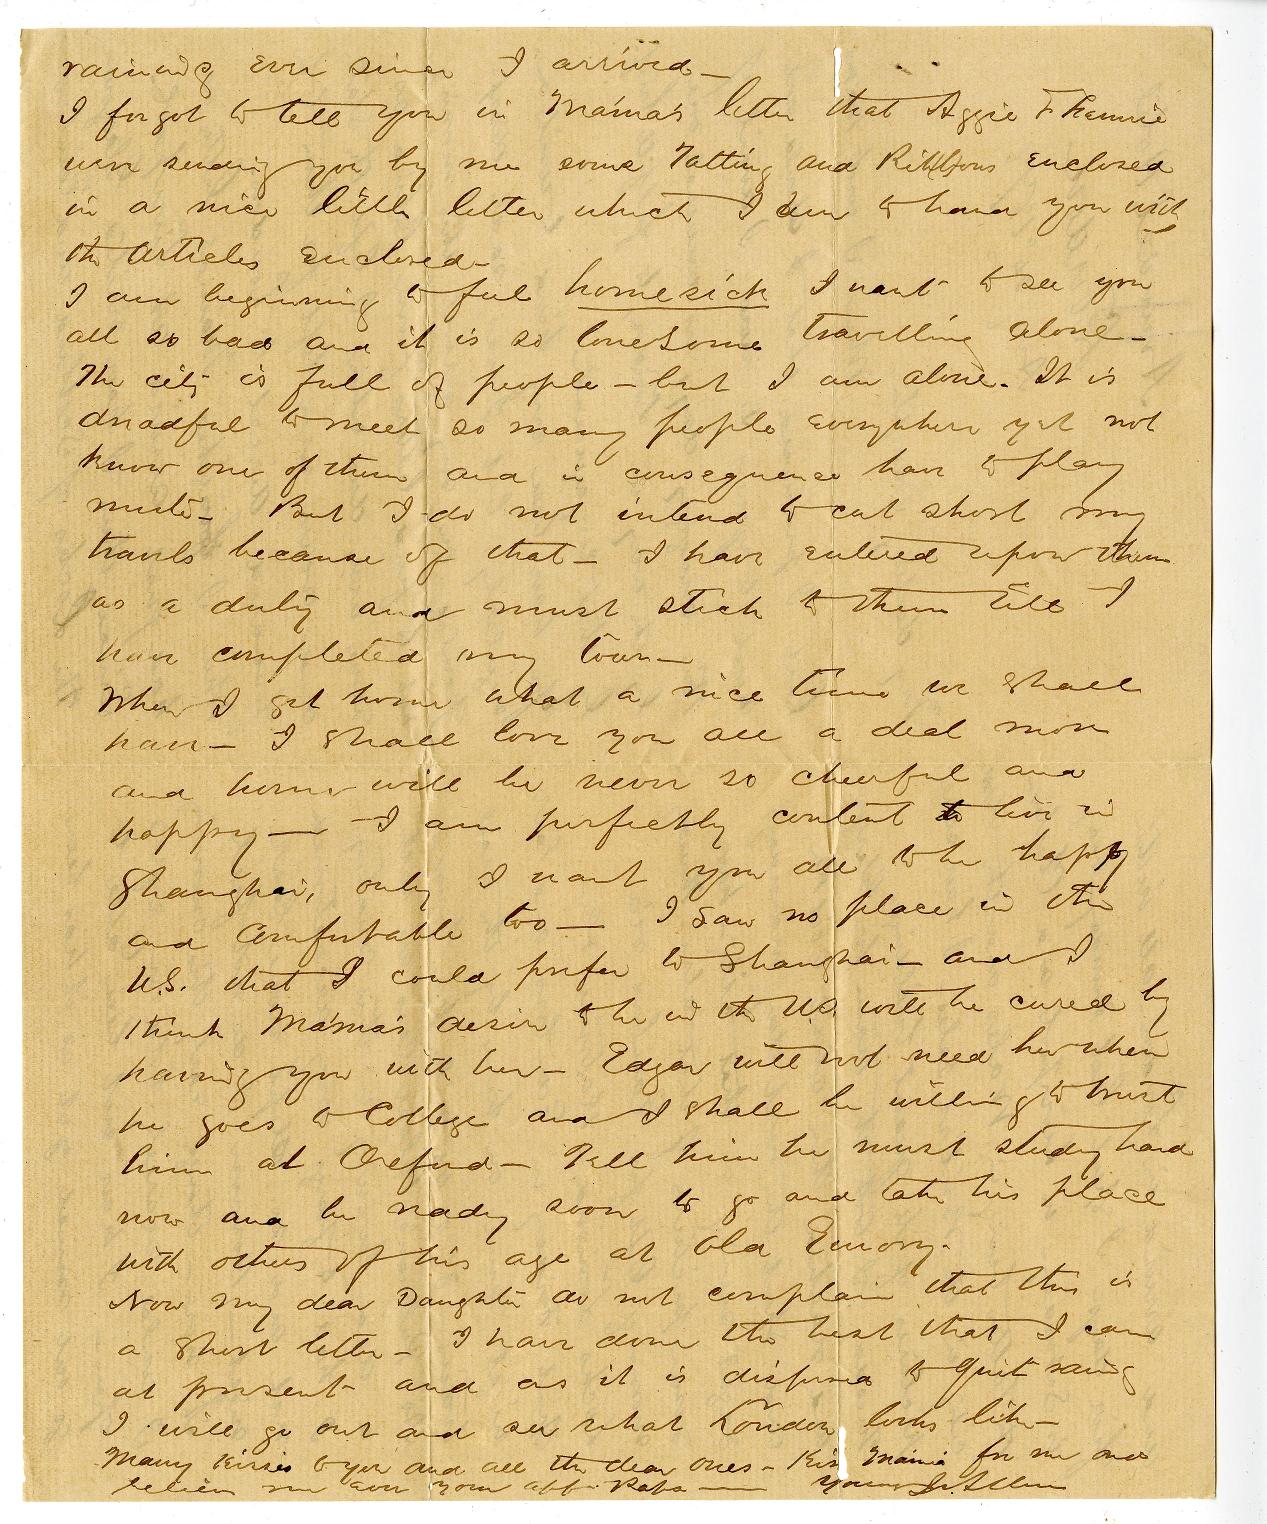 raining ever since I arrived—
I forgot to tell you in Mama's letter that Aggie & Fannie
were sending you by me some Tatting and Ribbons enclosed
in a nice little letter which I am to hand you with
the articles enclosed—
I am beginning to feel homesick I want to see you
all so bad and it is so lonesome travelling alone—
The city is full of people—but I am alone. It is
dreadful to meet so many people everywhere yet not
know one of them and in consequence have to play
mute— But I do not intend to cut short my
travels because of that— I have entered upon them
as a duty and must stick to them till I
have completed my tour—
When I get home what a nice time we shall
have— I shall love you all a deal more
and home will be never so cheerful and
happy— I am perfectly content to live in
Shanghai, only I want you all to be happy
and comfortable too— I saw no place in the
U.S. that I could prefer to Shanghai— and I
think Mama's desire to be in the U.S. will be cured by
having you with her— Edgar will not need her when
he goes to College and I shall be willing to trust
him at Oxford— Tell him he must study hard
now and be ready soon to go and take his place
with others of his age at Old Emory.
Now my dear Daughter do not complain that this is
a short letter— I have done the best that I can
at present and as it is disposed to quit raining
I will go out and see what London looks like—
Many kisses to you and all the dear ones— Kiss Mama for me and
believe me ever your aff. Papa— Young J. Allen